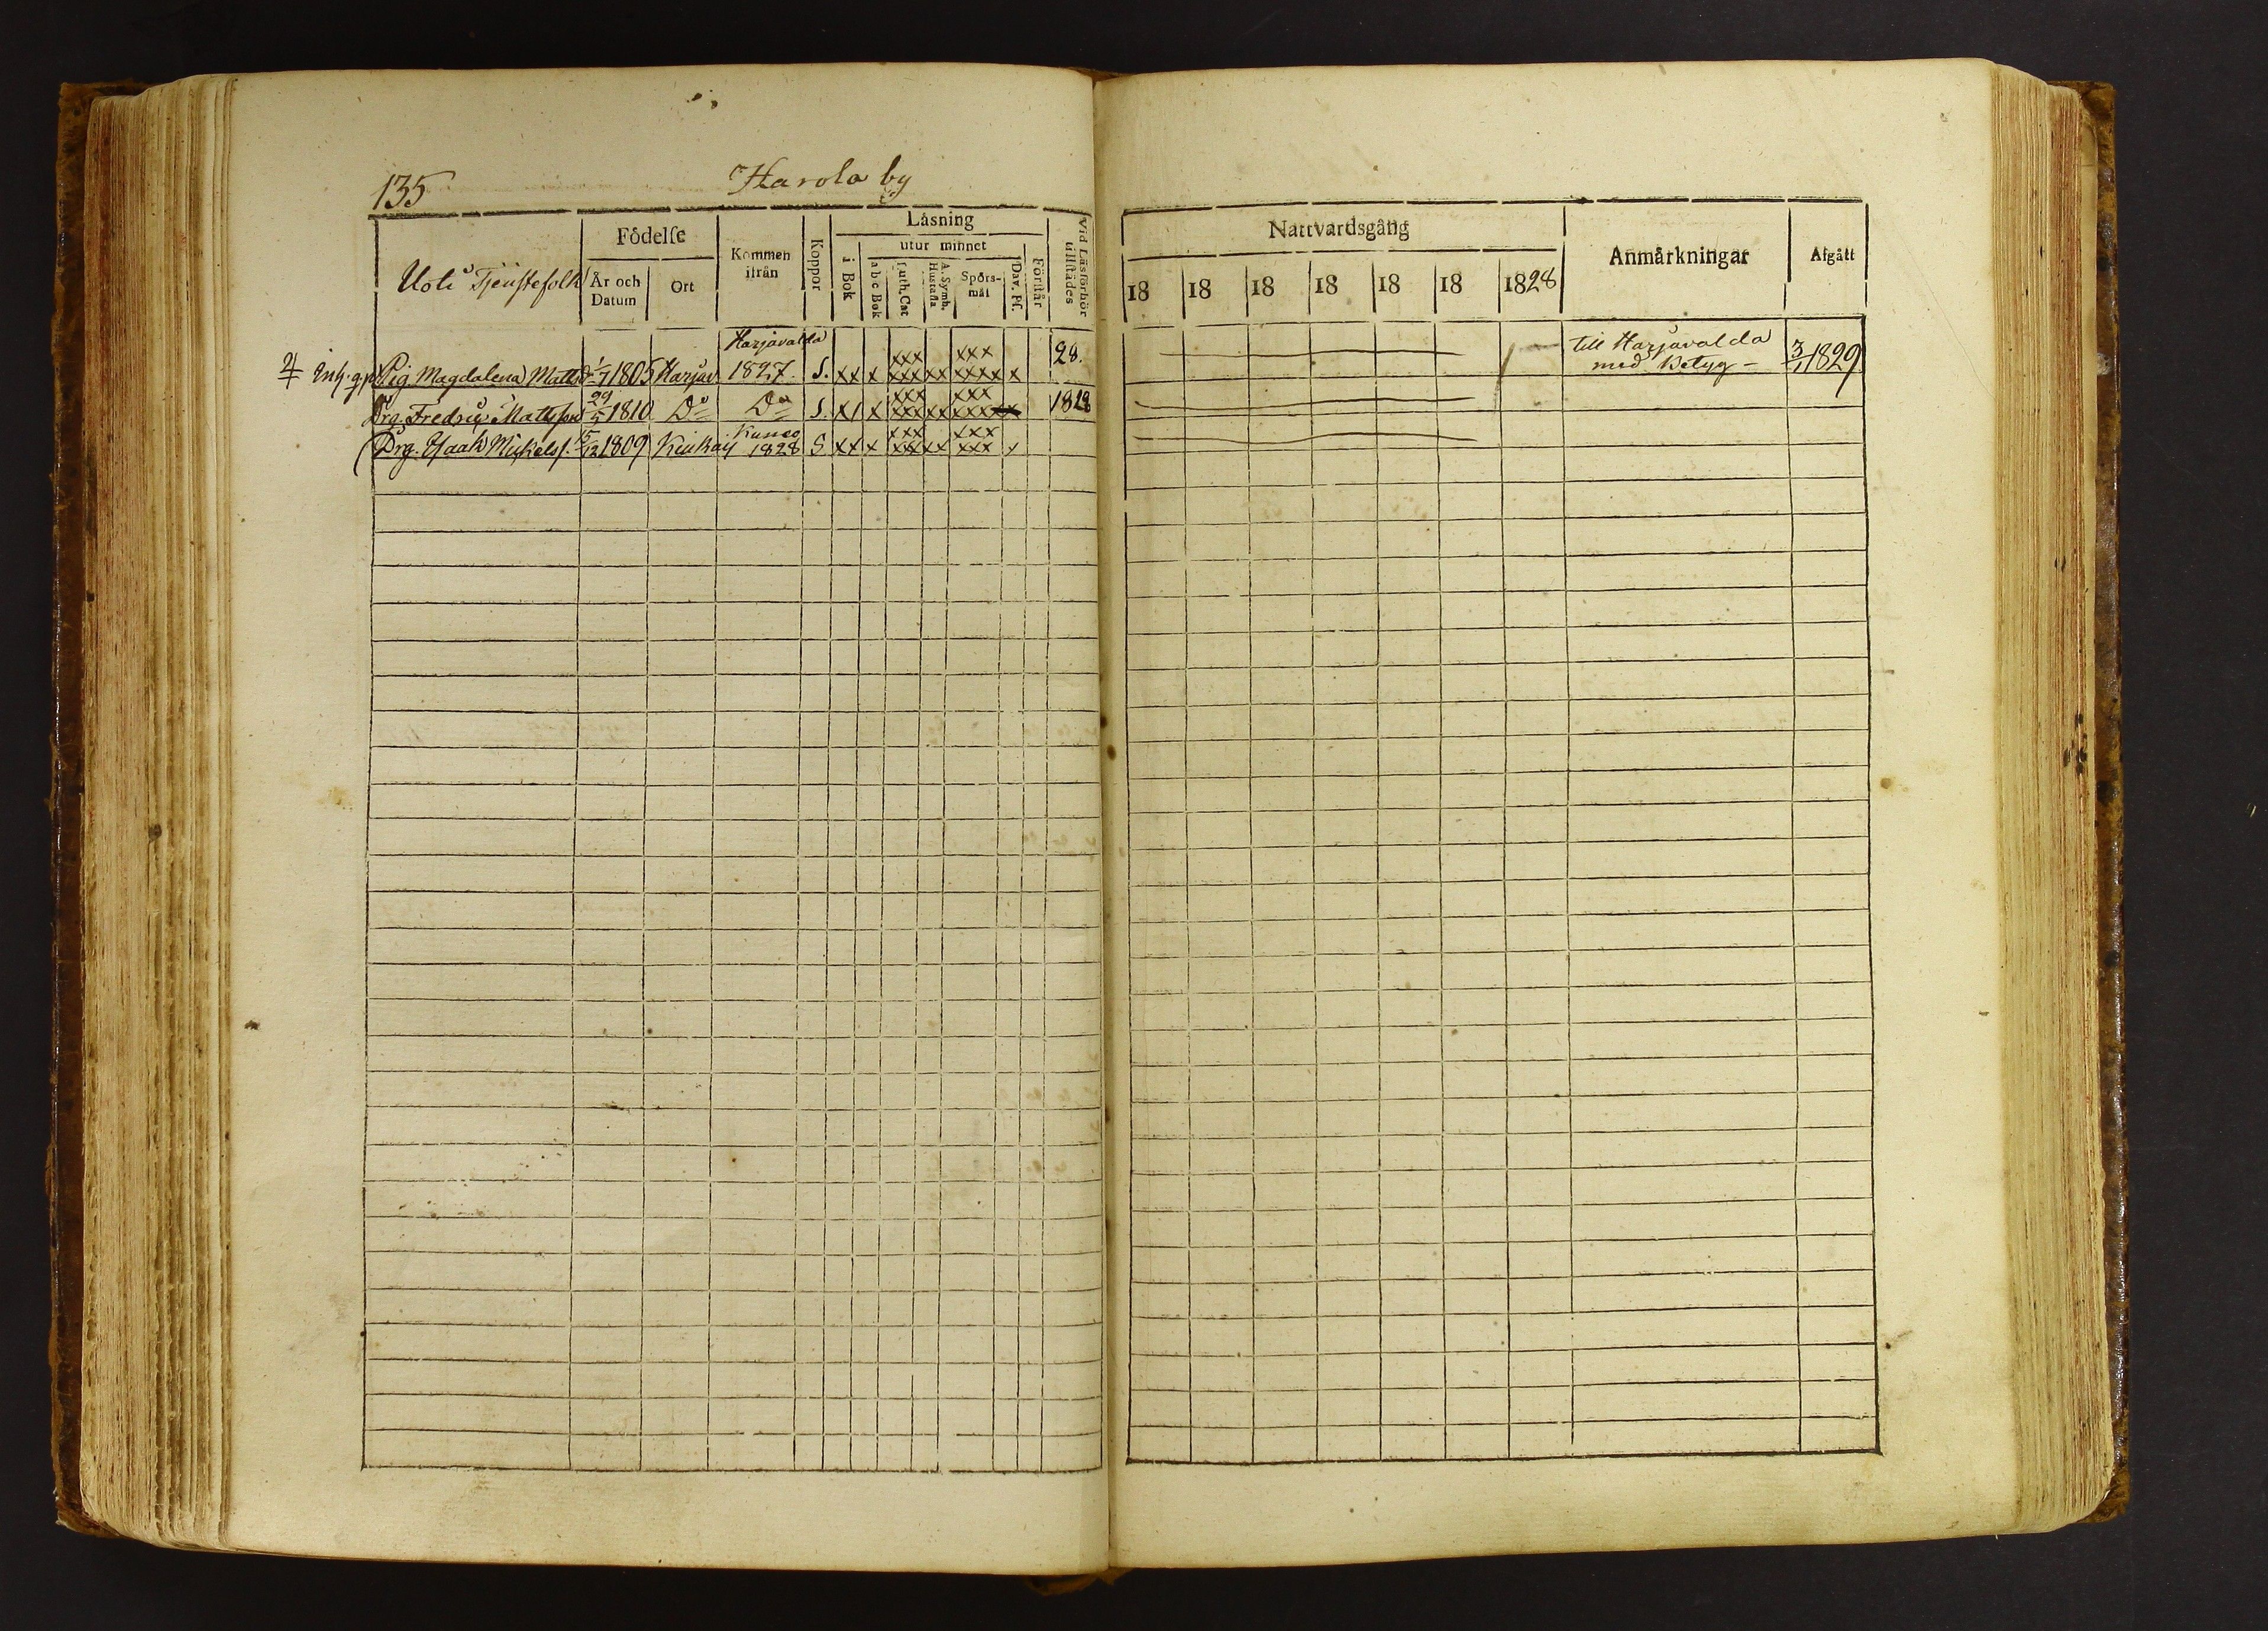 135 Harola by
Födelse Kommen ifrån Koppor Läsning Vid Läsförhör tillstädes
Uoti Tjenstefolk År och Datum Ort i Bok utur minnet a b c Bok Luth. Cat A. Symb. Hustafla Spörs-mål Dav. Pſ. Förstår
Harjavalda
Pig. Magdalena Mattsd 1/7 1805 Harjav 1827 S. xx x xxx xxx xx xxx xxxx x 28.
Drg. Fredric Mattsson 29/5 1810 Do Do S. x/ x xxx xxx xx xxx 1828
Drg. Isaak Mickelss. 15/12 1809 Kiukais 1828 S xx x xxx xxx xx xxx xxx x
Nattvardsgång Anmärkningar Afgått
18 18 18 18 18 18 1828
till Harjavalda
med Betyg - 3/1 1829